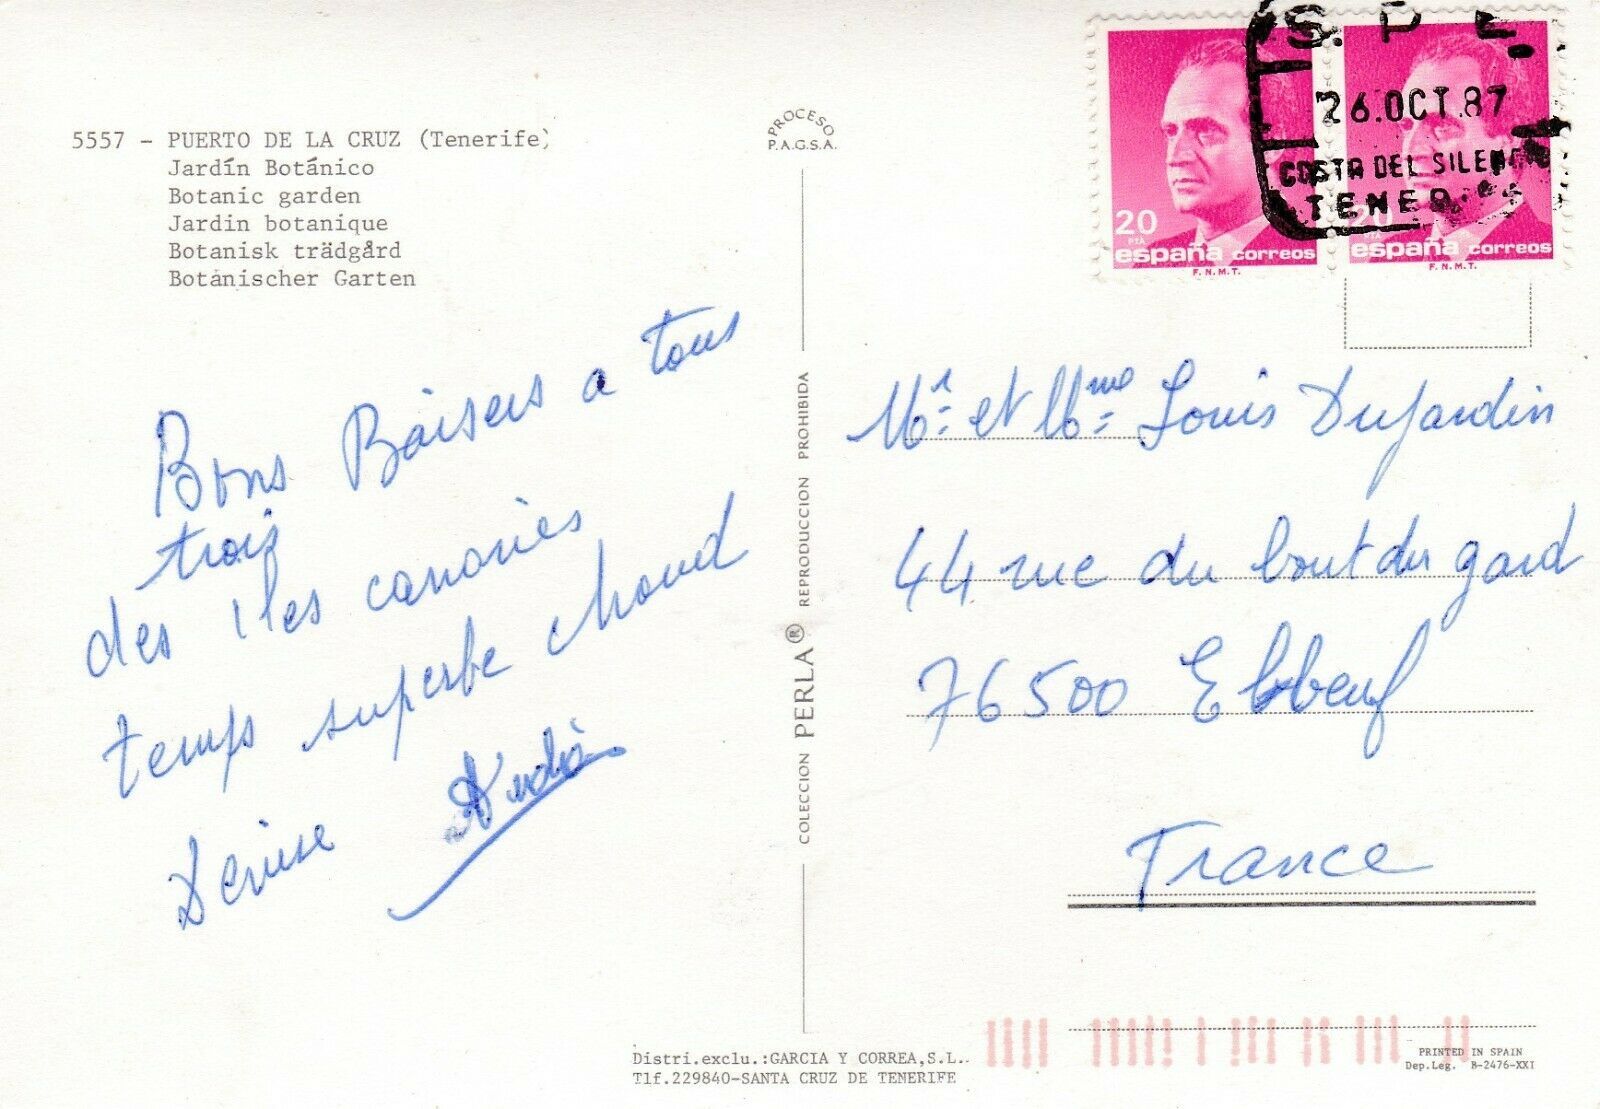 5557 - PUERTO DE LA CRUZ (Tenerife)
Jardín Botánico
Botanic garden
Jardin botanique
Botanisk trädgård
Botánischer Garten
Bons Baisers a tous
trois
des iles canaries
temps superbe chaud
Denise
PROCESO
P.A.G.S.A.
COLECCION PERLA® REPRODUCCION PROHIBIDA
20
PTA
españa correos
F.N.M.T.
20
españa correos
F.N.M.T.
26.OCT.87
COSTA DEL SILENC
TENER
Mr. et Mme. Louis Dujardin
44 rue du bout du gard
76500 Elbeuf
France
Distri.exclu.:GARCIA Y CORREA,S.L.
Tlf.229840-SANTA CRUZ DE TENERIFE
PRINTED IN SPAIN
Dep.Leg. B-2476-XXI